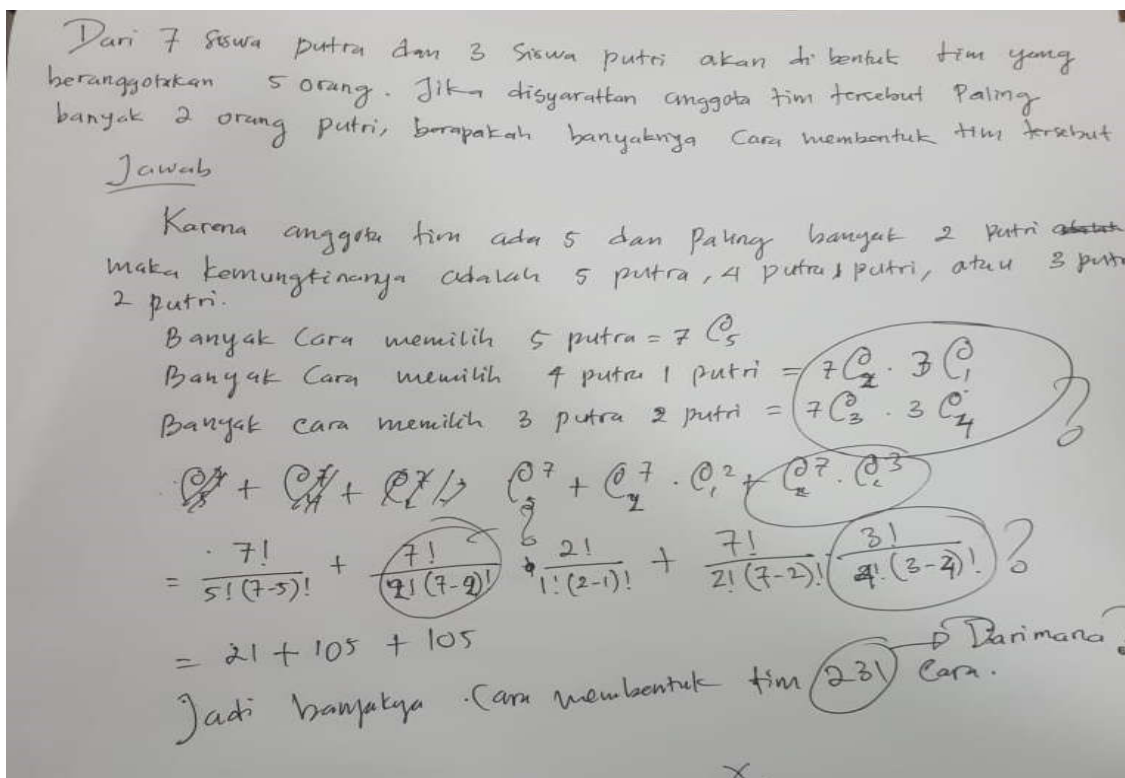 Dari 7 siswa putra dan 3 siswa putri akan di bentuk tim yang
beranggotakan 5 orang. Jika disyaratkan anggota tim tersebut Paling
banyak 2 orang putri, berapakah banyaknya Cara membentuk tim tersebut
Jawab
Karena anggota tim ada 5 dan Paling banyak 2 putri
maka kemungkinanya adalah 5 putra, 4 putra 1 putri, atau 3 putr
2 putri.
Banyak Cara memilih 5 putra = 7 C5
Banyak Cara memilih 4 putra 1 putri = 7 C2 . 3 C1
Banyak cara memilih 3 putra 2 putri = 7 C3 . 3 C4 ?
+ + C^7 + C^7 . C1^2 + C2^7 . C^3
= 7!/5!(7-5)! + 7!/2!(7-2)! 2!/1!(2-1)! + 7!/2!(7-2)! 3!/4!(3-4)! ?
= 21 + 105 + 105
Jadi banyakya Cara membentuk tim 231 Cara. → Darimana?